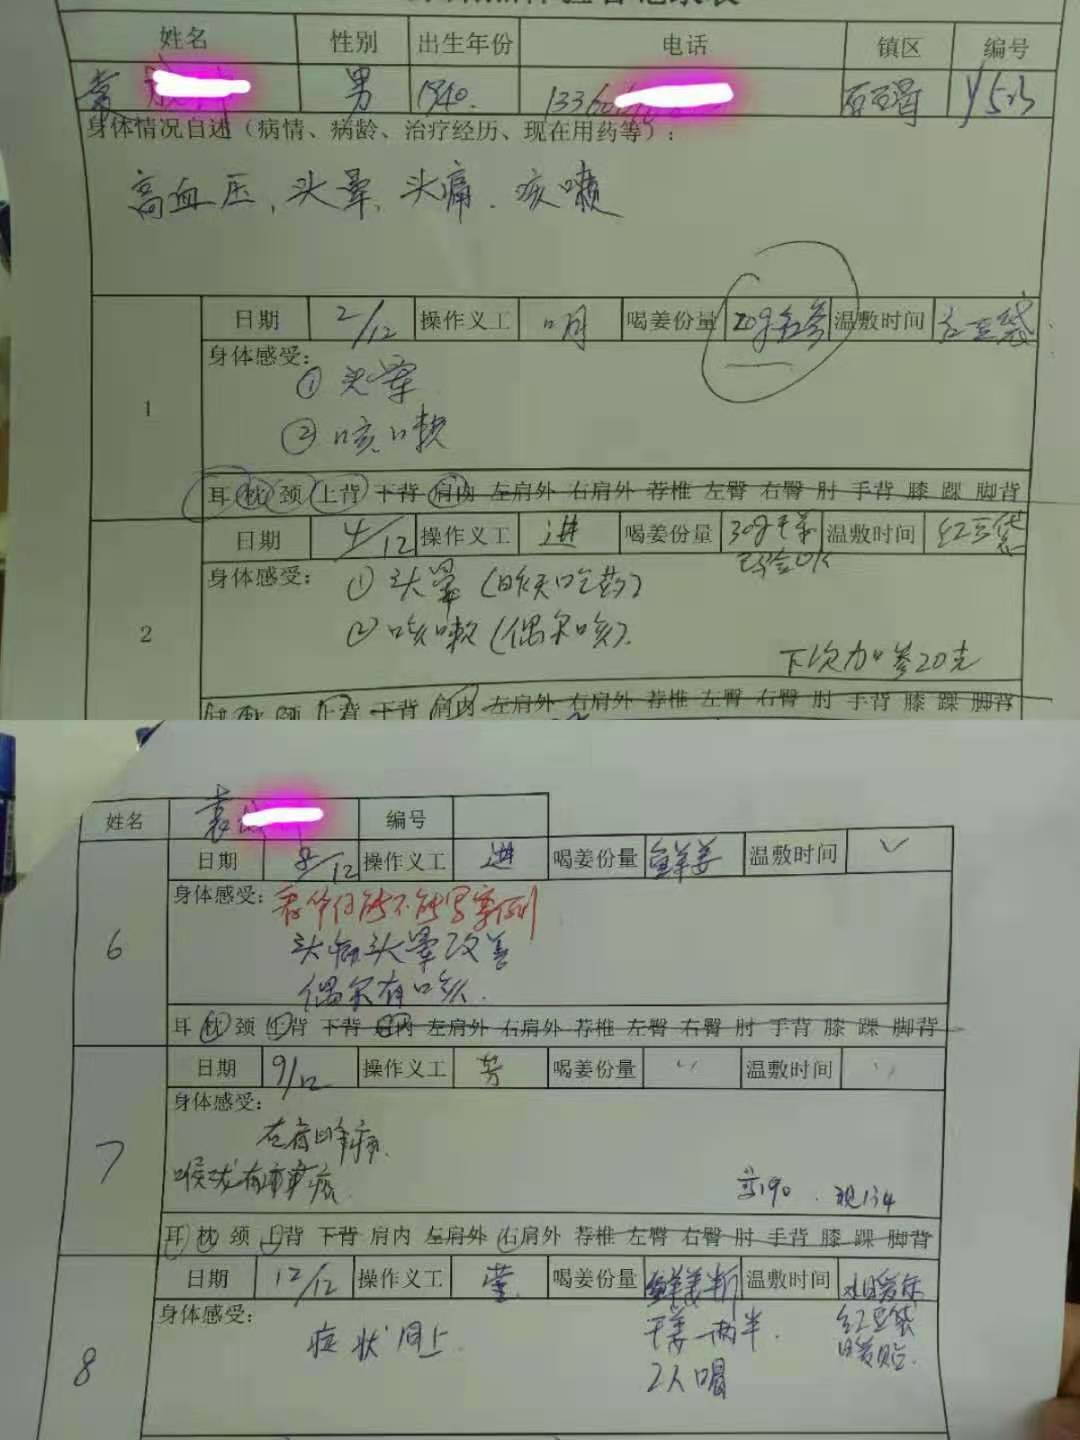 姓名 性别 出生年份 电话 镇区 编号
袁 男 1940. 1336
身体情况自述（病情、病龄、治疗经历、现在用药等）：
高血压、头晕、头痛、咳嗽
1 日期 2/12 操作义工 喝姜份量 20g红参 温敷时间 红豆袋
身体感受：
① 头晕
② 咳嗽
耳 枕 颈 上背 下背 肩内 左肩外 右肩外 荐椎 左臀 右臀 肘 手背 膝 踝 脚背
2 日期 4/12 操作义工 进 喝姜份量 30g干姜 温敷时间 红豆袋
身体感受：
① 头晕（昨天吃药）
② 咳嗽（偶尔咳）.
下次加参20克
耳 枕 颈 上背 下背 肩内 左肩外 右肩外 荐椎 左臀 右臀 肘 手背 膝 踝 脚背
姓名 袁 编号
6 日期 8/12 操作义工 进 喝姜份量 鲜姜 温敷时间 ✓
身体感受：
头痛头晕改善
偶尔有咳.
耳 枕 颈 上背 下背 肩内 左肩外 右肩外 荐椎 左臀 右臀 肘 手背 膝 踝 脚背
7 日期 9/12 操作义工 芳 喝姜份量 温敷时间
身体感受：
喉咙有
高190. 现134
耳 枕 颈 上背 下背 肩内 左肩外 右肩外 荐椎 左臀 右臀 肘 手背 膝 踝 脚背
8 日期 12/12 操作义工 莹 喝姜份量 鲜姜半斤 温敷时间
身体感受：
症状同上.
干姜一两半.
2人喝
红豆袋
暖贴.